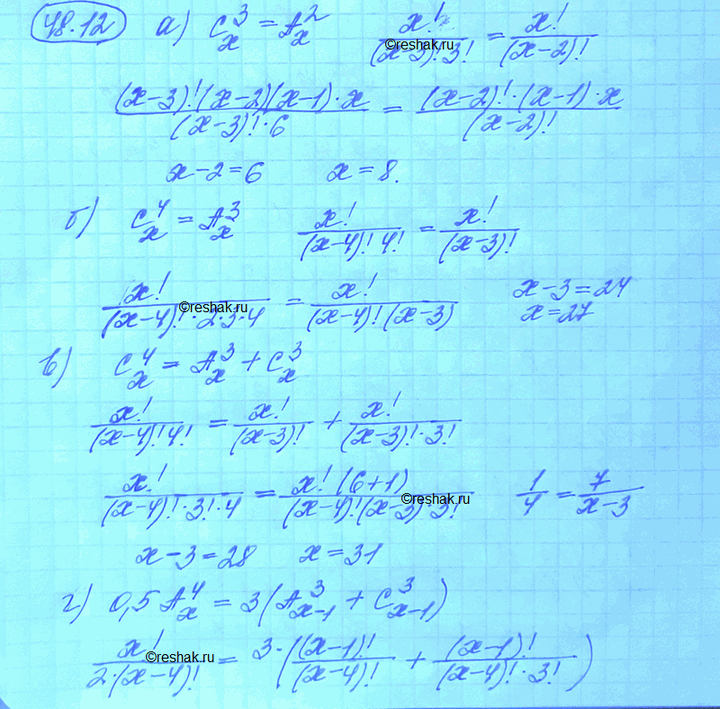 48.12 а) C_x^3 = A_x^2 x!/((x-3)!·3!) = x!/(x-2)!
©reshak.ru
((x-3)!(x-2)(x-1)·x)/((x-3)!·6) = ((x-2)!·(x-1)·x)/(x-2)!
x-2=6 x=8.
б) C_x^4 = A_x^3 x!/((x-4)! 4!) = x!/(x-3)!
x!/((x-4)!·2·3·4) = x!/((x-4)!(x-3)) x-3=24
©reshak.ru
x=27
в) C_x^4 = A_x^3 + C_x^3
x!/((x-4)! 4!) = x!/(x-3)! + x!/((x-3)!·3!)
x!/((x-4)!·3!·4) = x!(6+1)/((x-4)!(x-3)·3!) 1/4 = 7/(x-3)
©reshak.ru
x-3=28 x=31
г) 0,5A_x^4 = 3(A_{x-1}^3 + C_{x-1}^3)
x!/(2·(x-4)!) = 3·((x-1)!/(x-4)! + (x-1)!/((x-4)!·3!))
©reshak.ru